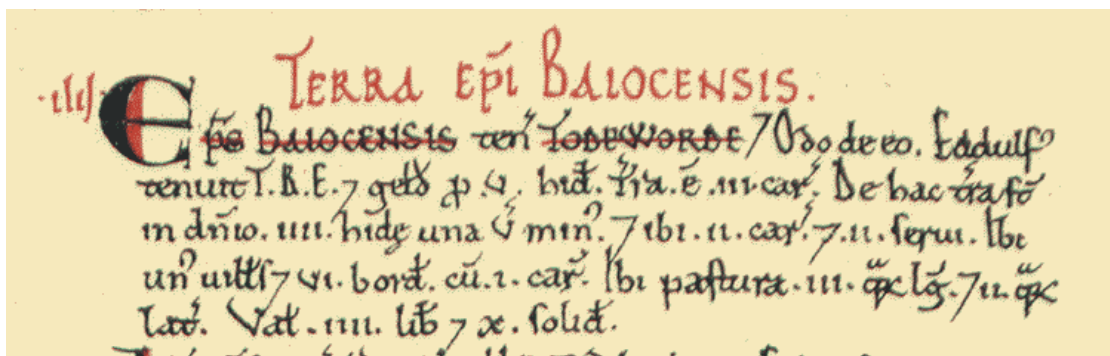 ·iiii· TERRA EP̄I BAIOCENSIS.
Ep̄s BAIOCENSIS ten̄ TODEWORDE ⁊ Odo de eo. Eddulf᷒
tenuit T.R.E. ⁊ geld̄ ꝑ .v. hid̄. Tr̄a .ē .iii. car̄. De hac tr̄a st̄
in dn̄io .iiii. hidę una v̄ min᷒. ⁊ ibi .ii. car̄. ⁊ .ii. serui. Ibi
un᷒ uilłs ⁊ vi. bord̄. cū .i. car̄. Ibi pastura .iii. q̄ꝝ lḡ. ⁊ ii. q̄ꝝ
lat̄. Val̄ .iiii. lib̄ ⁊ x. solid̄.